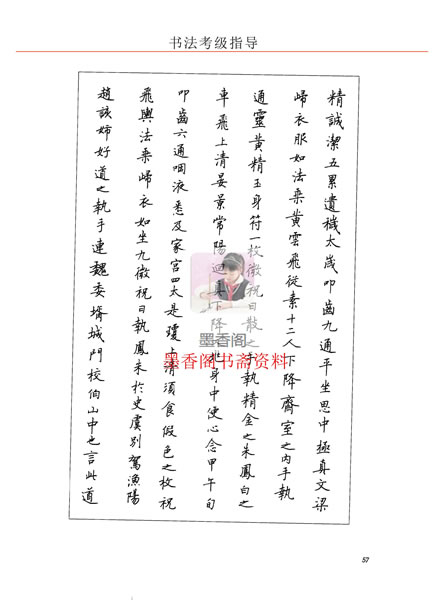 书法考级指导
精誠潔五累遺穢太歲叩齒九通平坐思中極真文梁
歸衣服如法乘黄雲飛從素十二人下降齋室之内手執
通靈黄精玉身符一枚微祝曰散之手執精金之朱鳳白之
車飛上清晏景常陽迴真下降 身中使心念甲午旬
叩齒六通咽液悉及家宮四太是瓊上清須食假色之枚祝
飛輿法乘歸衣如坐九微祝曰執鳳来於史虞别駕漁陽
趙該姊好道之執手連魏委壻城門校伯山中也言此道
墨香阁
墨香阁书斋资料
57